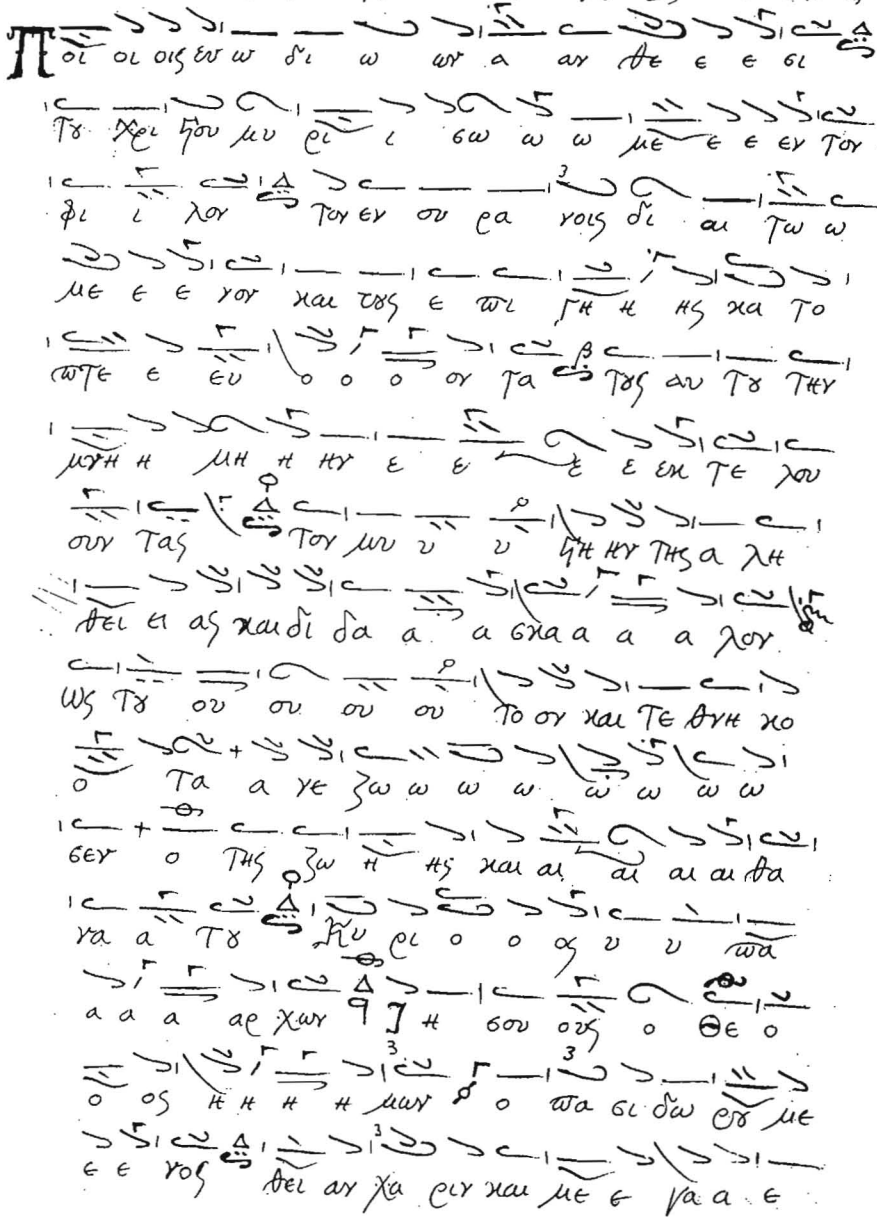 Ποι οι οις ευ ω δι ω ων α αν θε ε ε ε σι
Τȣ Χρι ϛου μυ ρι ι σω ω ω με ε ε εν τον
φι ι λον τον εν ου ρα νοις δι αι τω ω
με ε ε νον και τȣς ε πι γη η ης κα το
πτε ε ευ ο ο ο ον τα τȣς αυ τȣ την
μνη η μη η ην ε ε ε ε εκ τε λου
ουν τας τον μυ υ υ ϛη ην της α λη
θει ει ας και δι δα α α σκα α α α λον
ως τȣ ου ου ου ου το ον και τε θνη κο
ο τα α νε ζω ω ω ω ω ω ω ω
σεν ο της ζω η ης και αι αι αι αι θα
να α τȣ Κυ ρι ο ο ος υ υ πα
α α α αρ χων η σου ους ο Θε ο
ο ος η η η η μων ο πα σι δω ρȣ με
ε ε νος θει αν χα ριν και με ε γα α ε